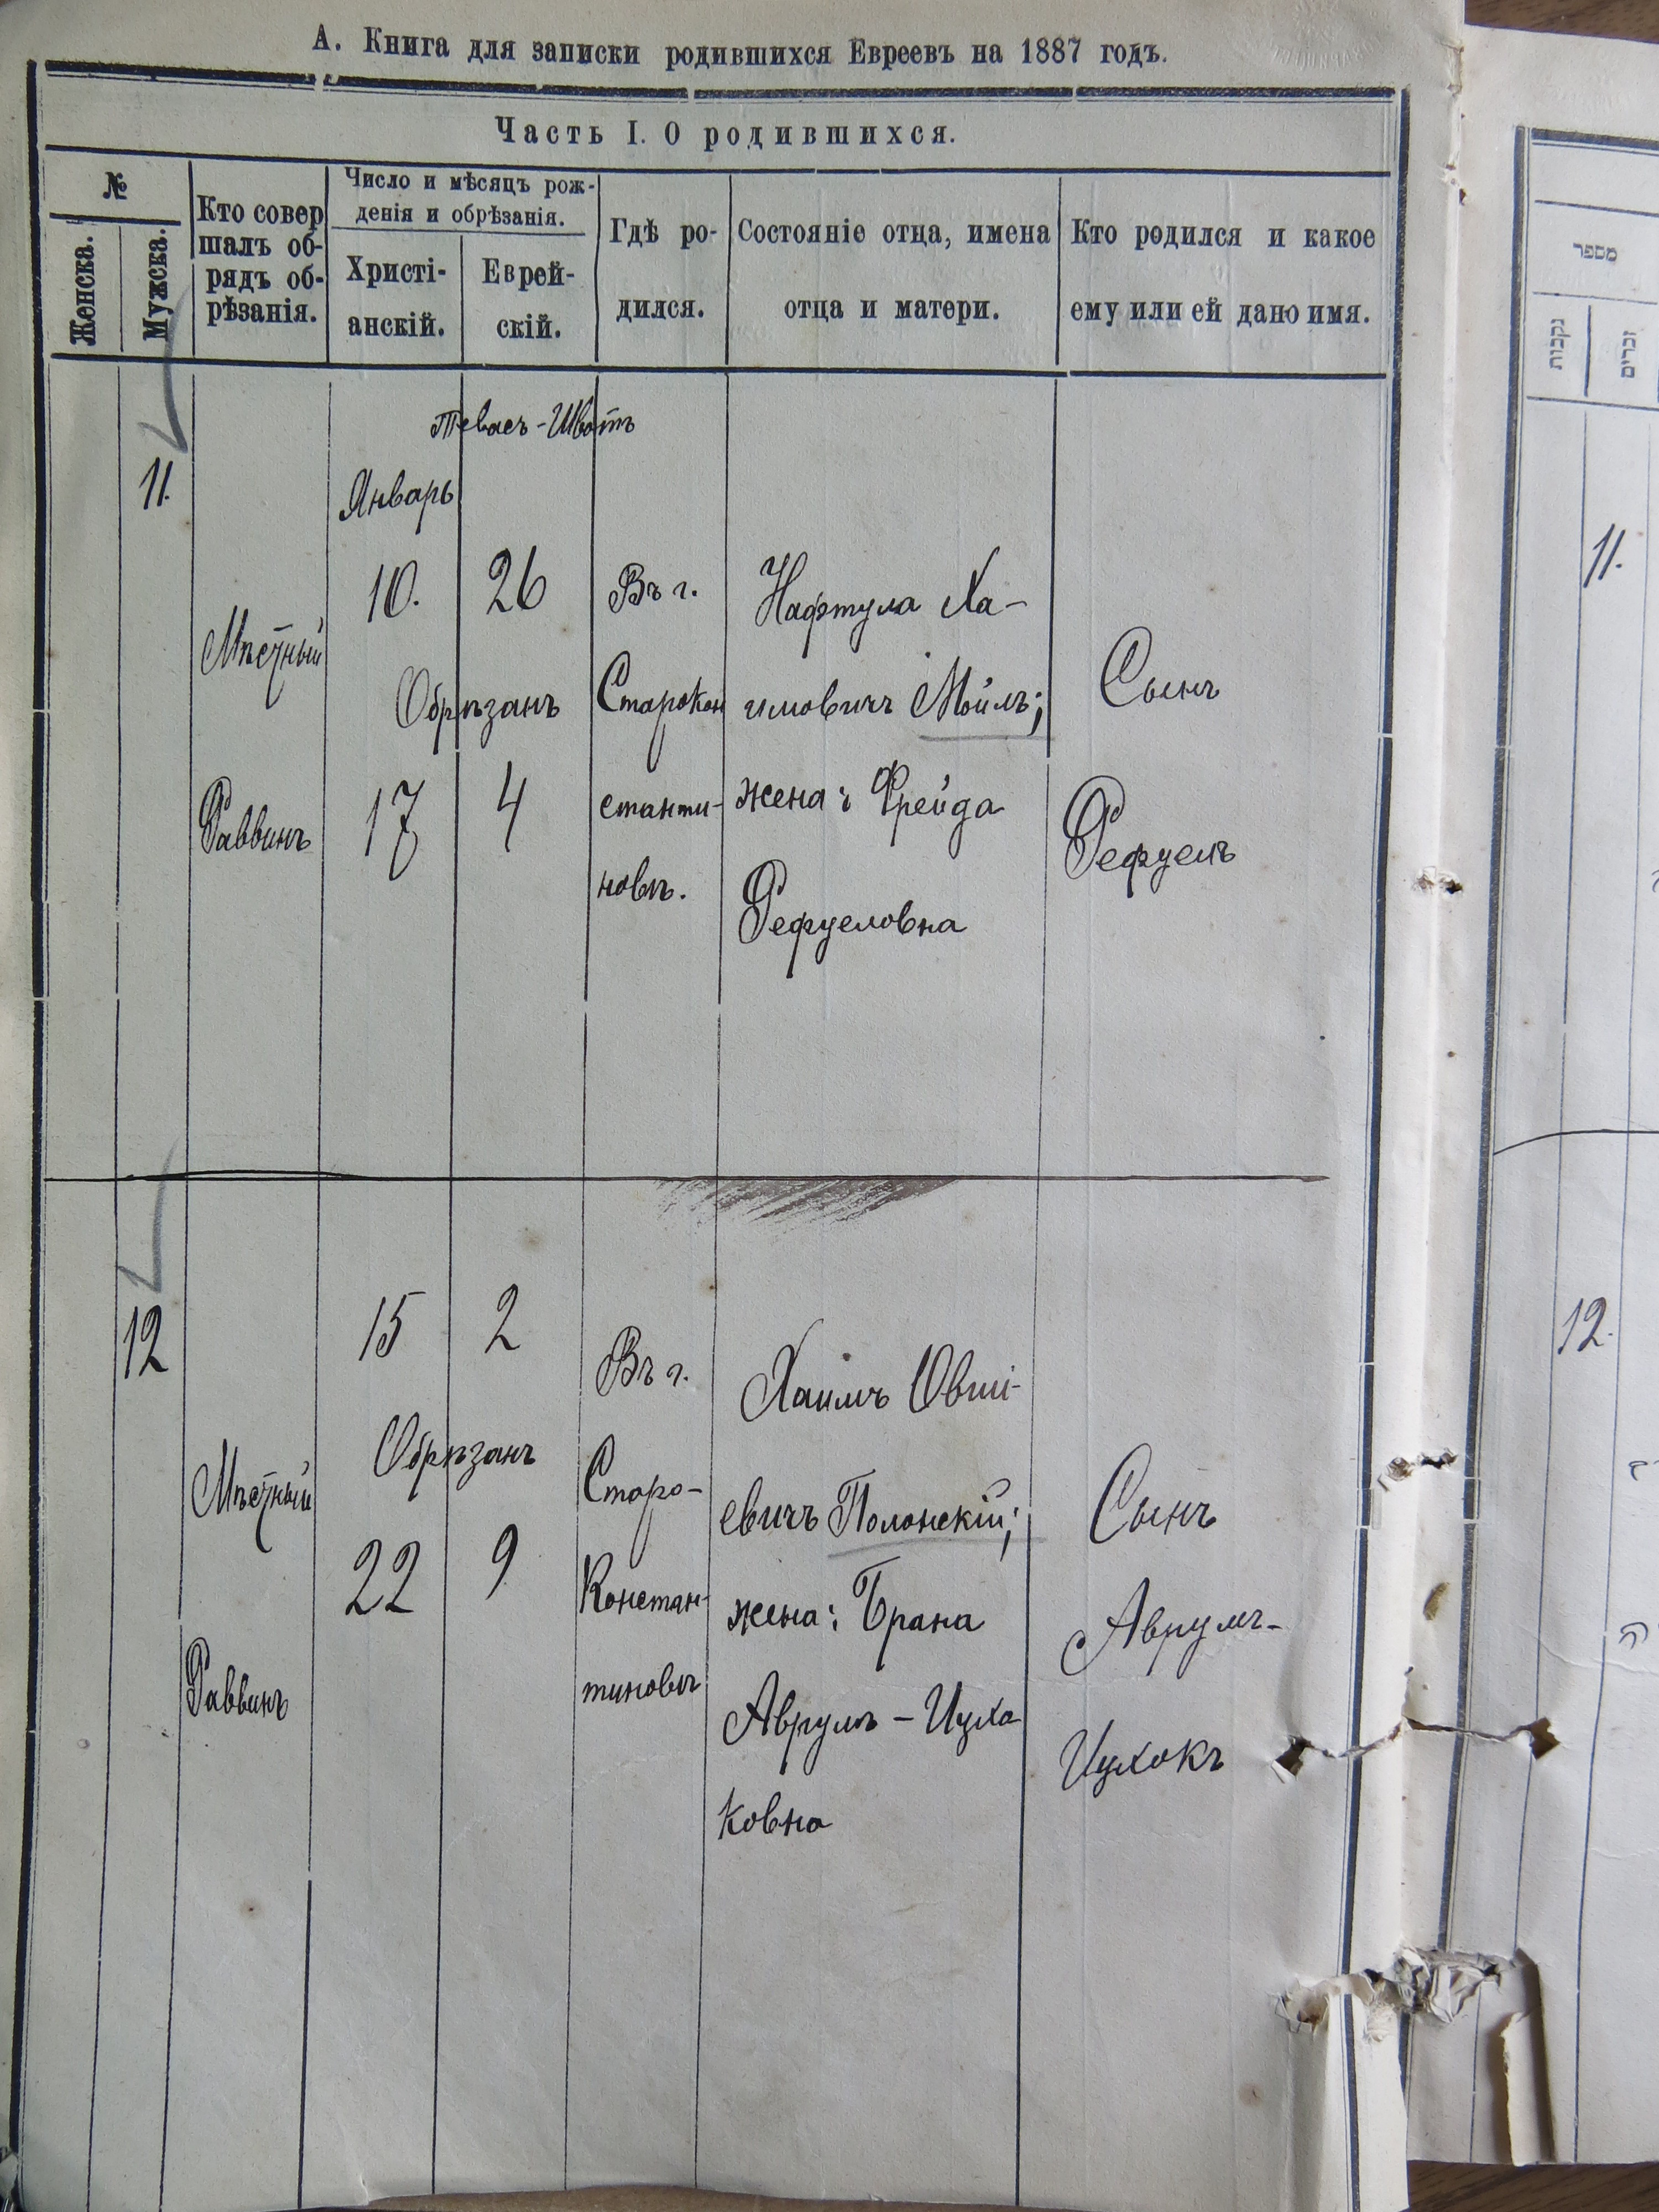 А. Книга для записки родившихся Евреевъ на 1887 годъ.
Часть I. О родившихся.
№
Женска.
Мужска.
Кто совер
шалъ об-
рядъ об-
рѣзанія.
Число и мѣсяцъ рож-
денія и обрѣзанія.
Христі-
анскій.
Еврей-
скій.
Гдѣ ро-
дился.
Состояніе отца, имена
отца и матери.
Кто родился и какое
ему или ей дано имя.
Тевасъ-Шватъ
11.
Январь
Мѣстный
Раввинъ
10.
26
Обрѣзанъ
17
4
Въ г.
Старокон
станти-
новѣ.
Нафтула Ха-
имовичъ Мойлъ;
жена: Фрейда
Рефуеловна
Сынъ
Рефуелъ
12
Мѣстный
Раввинъ
15
2
Обрѣзанъ
22
9
Въ г.
Старо-
Констан-
тиновѣ
Хаимъ Овши-
евичъ Полонскій;
жена: Брана
Аврумъ-Ицха
ковна
Сынъ
Аврумъ-
Ицхокъ
מספר
נקבות
זכרים
11.
12.